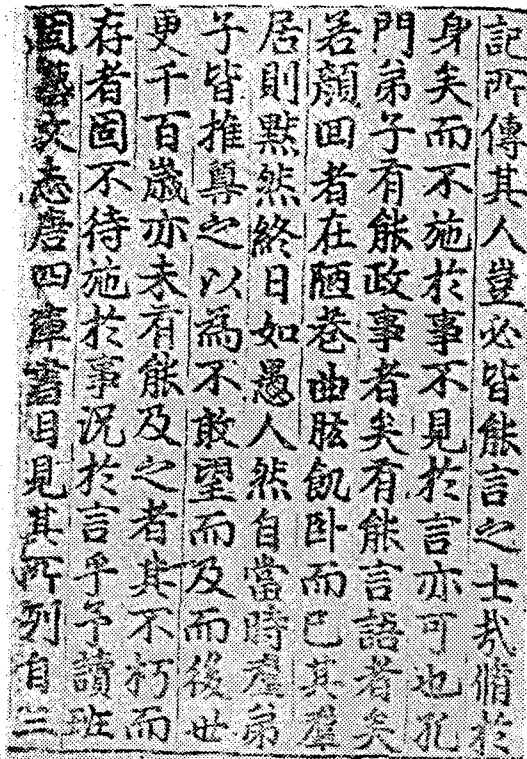 記所傳其人豈必皆能言之士哉脩於
身矣而不施於事不見於言亦可也孔
門弟子有能政事者矣有能言語者矣
若顏回者在陋巷曲肱飢卧而已其羣
居則默然終日如愚人然自當時羣弟
子皆推尊之以為不敢望而及而後世
更千百歲亦未有能及之者其不朽而
存者固不待施於事況於言乎予讀班
固藝文志唐四庫書目見其所列自三